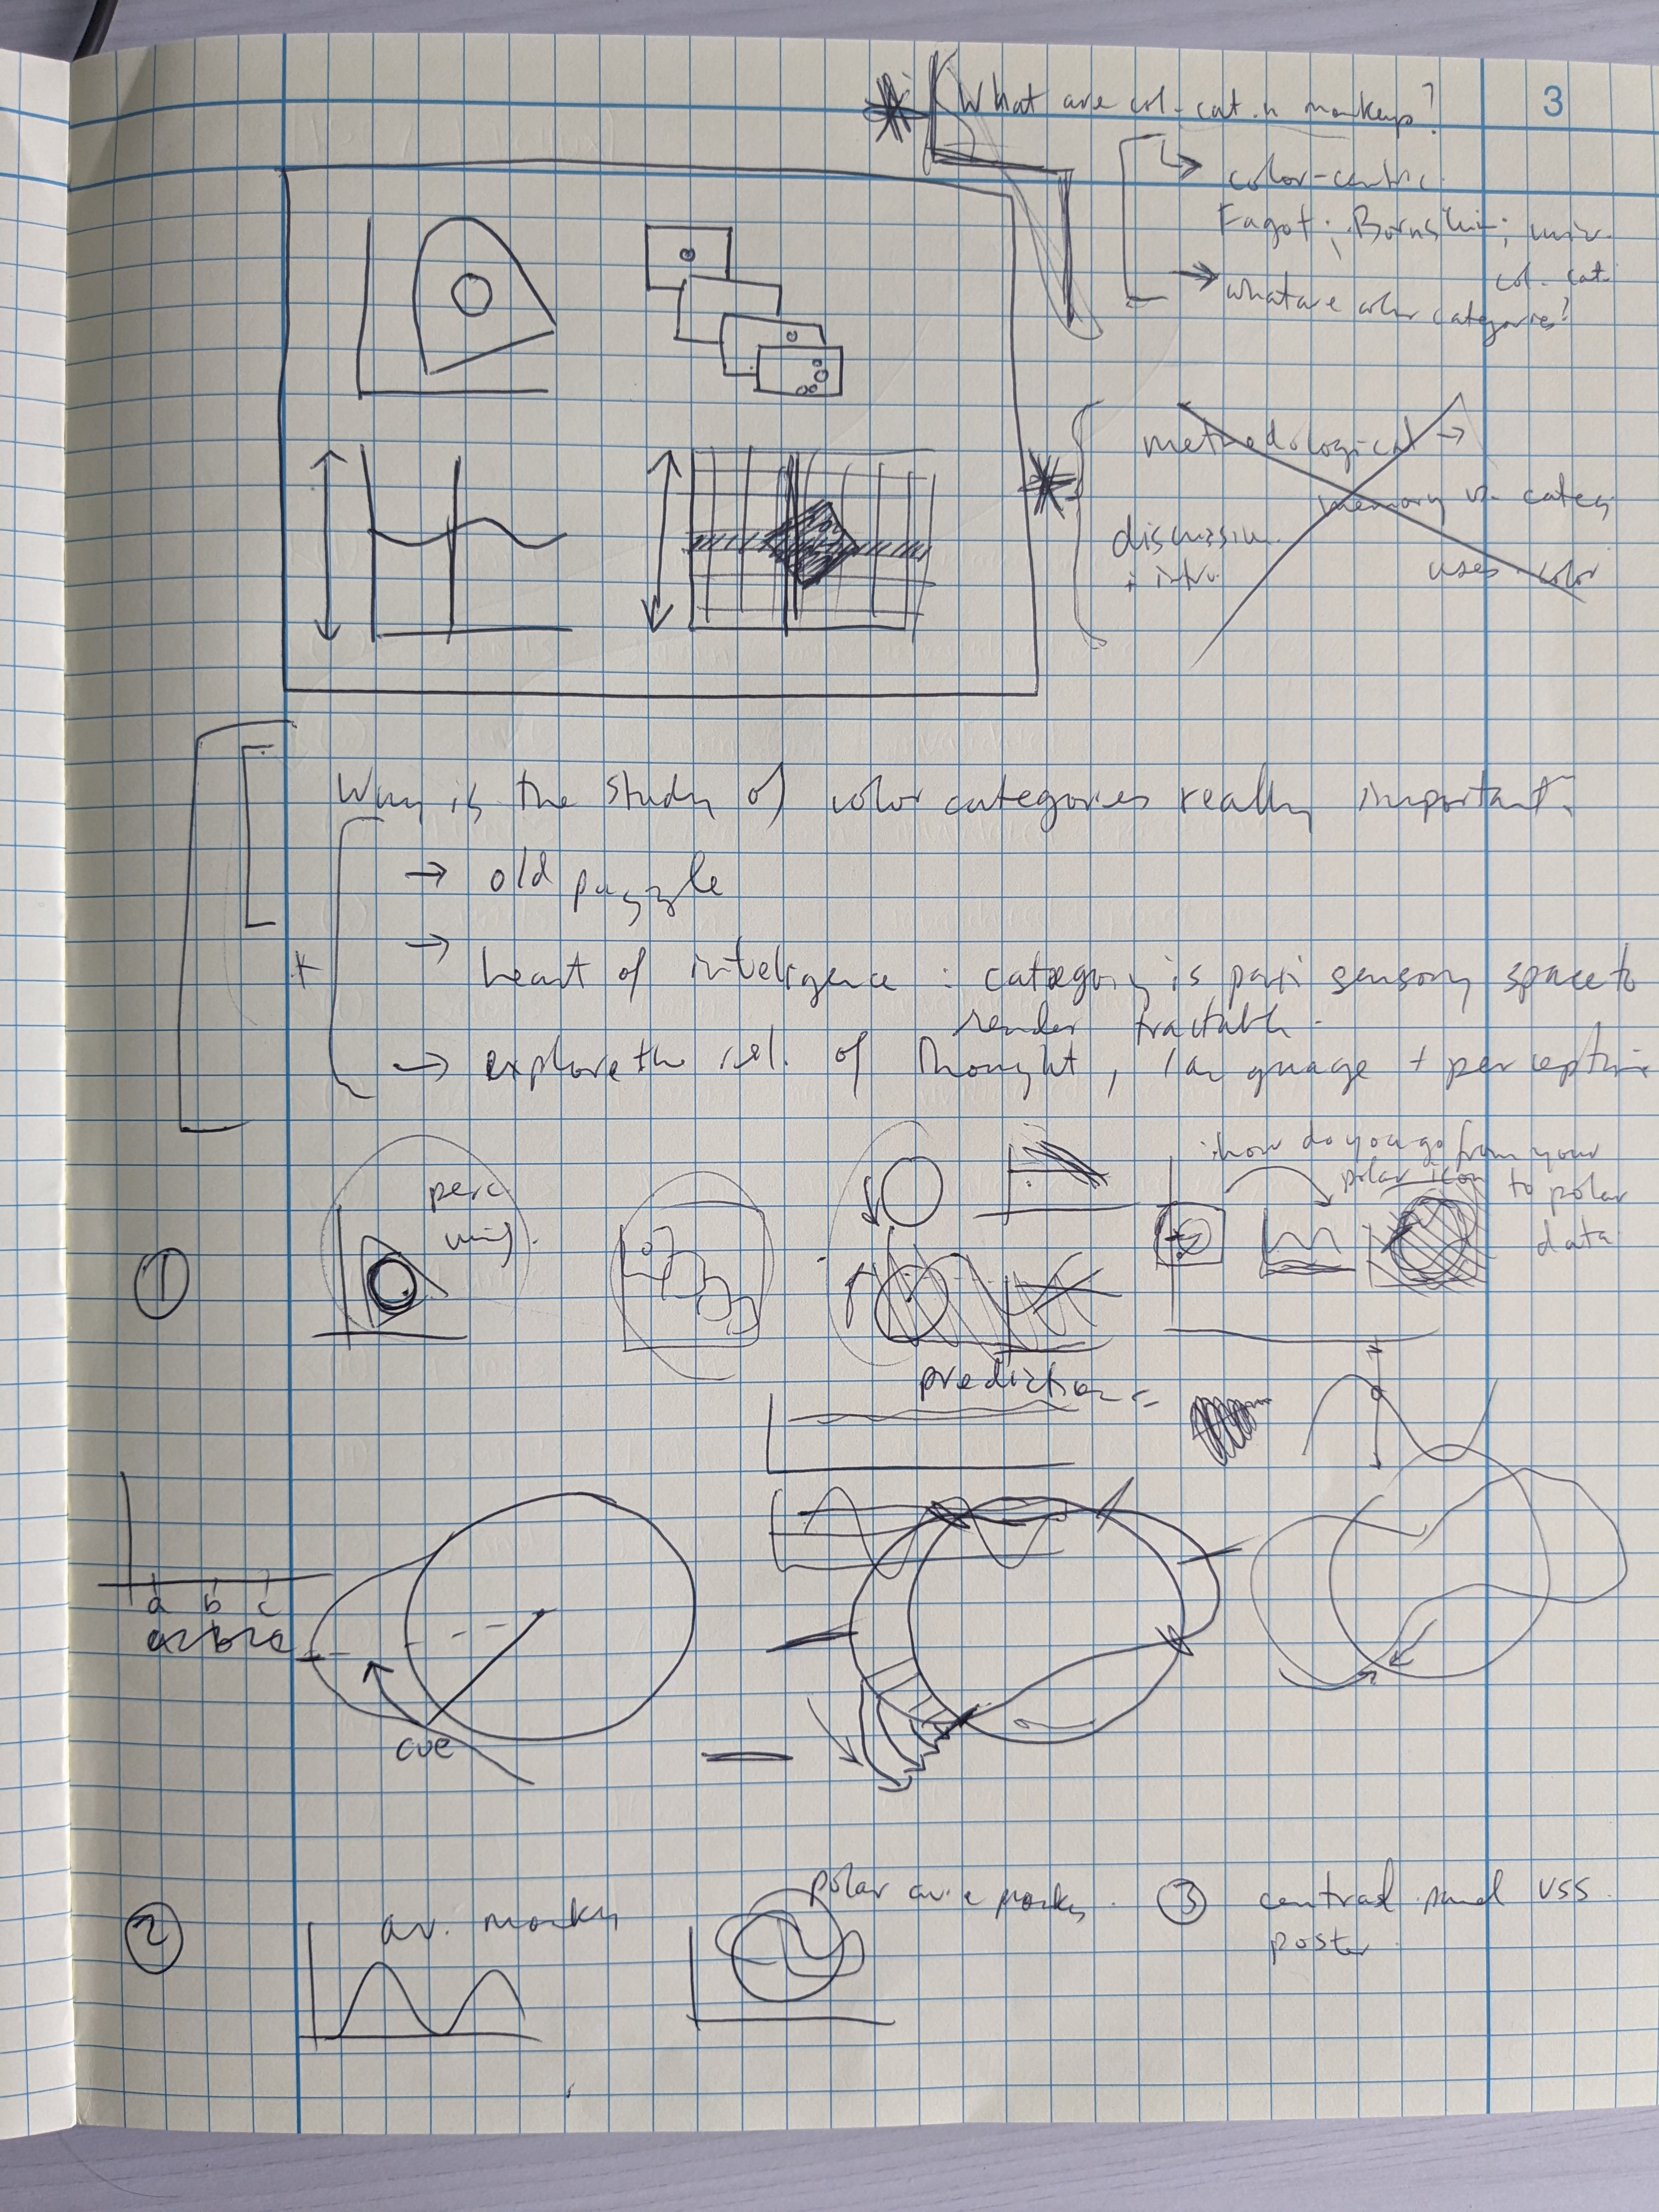 What are col-cat. in monkeys?
3
→ color-centric
Fagot; Bornstein; univ.
col. cat.
→ what are color categories?
methodological →
memory vs. categ
discussion
+ intro.
uses color
Why is the study of color categories really important?
→ old puzzle
→ heart of inteligence : category is sensory space to
render tractable.
→ explore the rel. of thought, language + perception
perc
unif.
how do you go from your
polar icon to polar
data
1
predictions
a b c
cue
2
av. monkey
polar av. monkey.
3 central panel VSS
poster